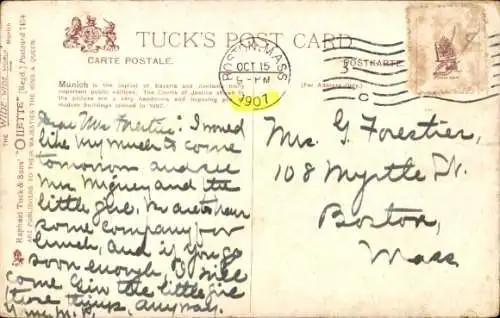 TUCK'S POST CARD
CARTE POSTALE.
POSTKARTE
(For Address Only.)
BOSTON, MASS.
OCT 15
5-PM
1907
C
Munich is the capital of Bavaria and contains many
important public edifices. The Courts of Justice shown in
the picture are a very handsome and imposing
modern buildings 1897.
Raphael Tuck & Sons' "OILETTE" [Regd.] Postcard 7454
ART PUBLISHERS TO THEIR MAJESTIES THE KING & QUEEN
Munich
Dear Mrs Forestier: I would
like very much to come
tomorrow and see
Mrs and the
little girl. have
some company for
lunch, and if you go
soon enough, I will
come see the little girl
time, anyway.
Mrs. G. Forestier,
108 Myrtle St.
Boston,
Mass